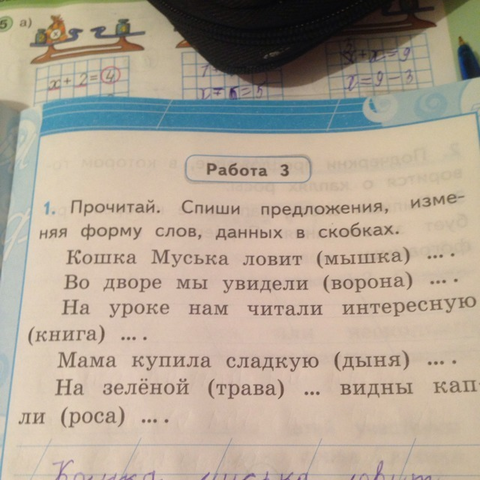 5 а)
x + 2 = 4
x = 9 - 3
2. Подчеркни в которой
ворится о каплях росы
Работа 3
1. Прочитай. Спиши предложения, изме-
няя форму слов, данных в скобках.
Кошка Муська ловит (мышка) ... .
Во дворе мы увидели (ворона) ... .
На уроке нам читали интересную
(книга) ... .
Мама купила сладкую (дыня) ... .
На зелёной (трава) ... видны кап-
ли (роса) ... .
Кошка Муська ловит